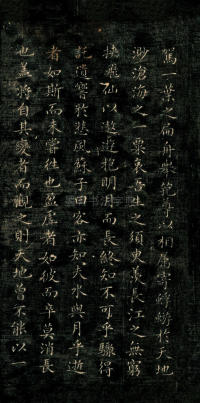 駕一葉之扁舟舉匏尊以相屬寄蜉蝣於天地
渺滄海之一粟哀吾生之須臾羨長江之無窮
挾飛仙以遨遊抱明月而長終知不可乎驟得
託遺響於悲風蘇子曰客亦知夫水與月乎逝
者如斯而未嘗往也盈虛者如彼而卒莫消長
也蓋將自其變者而觀之則天地曾不能以一